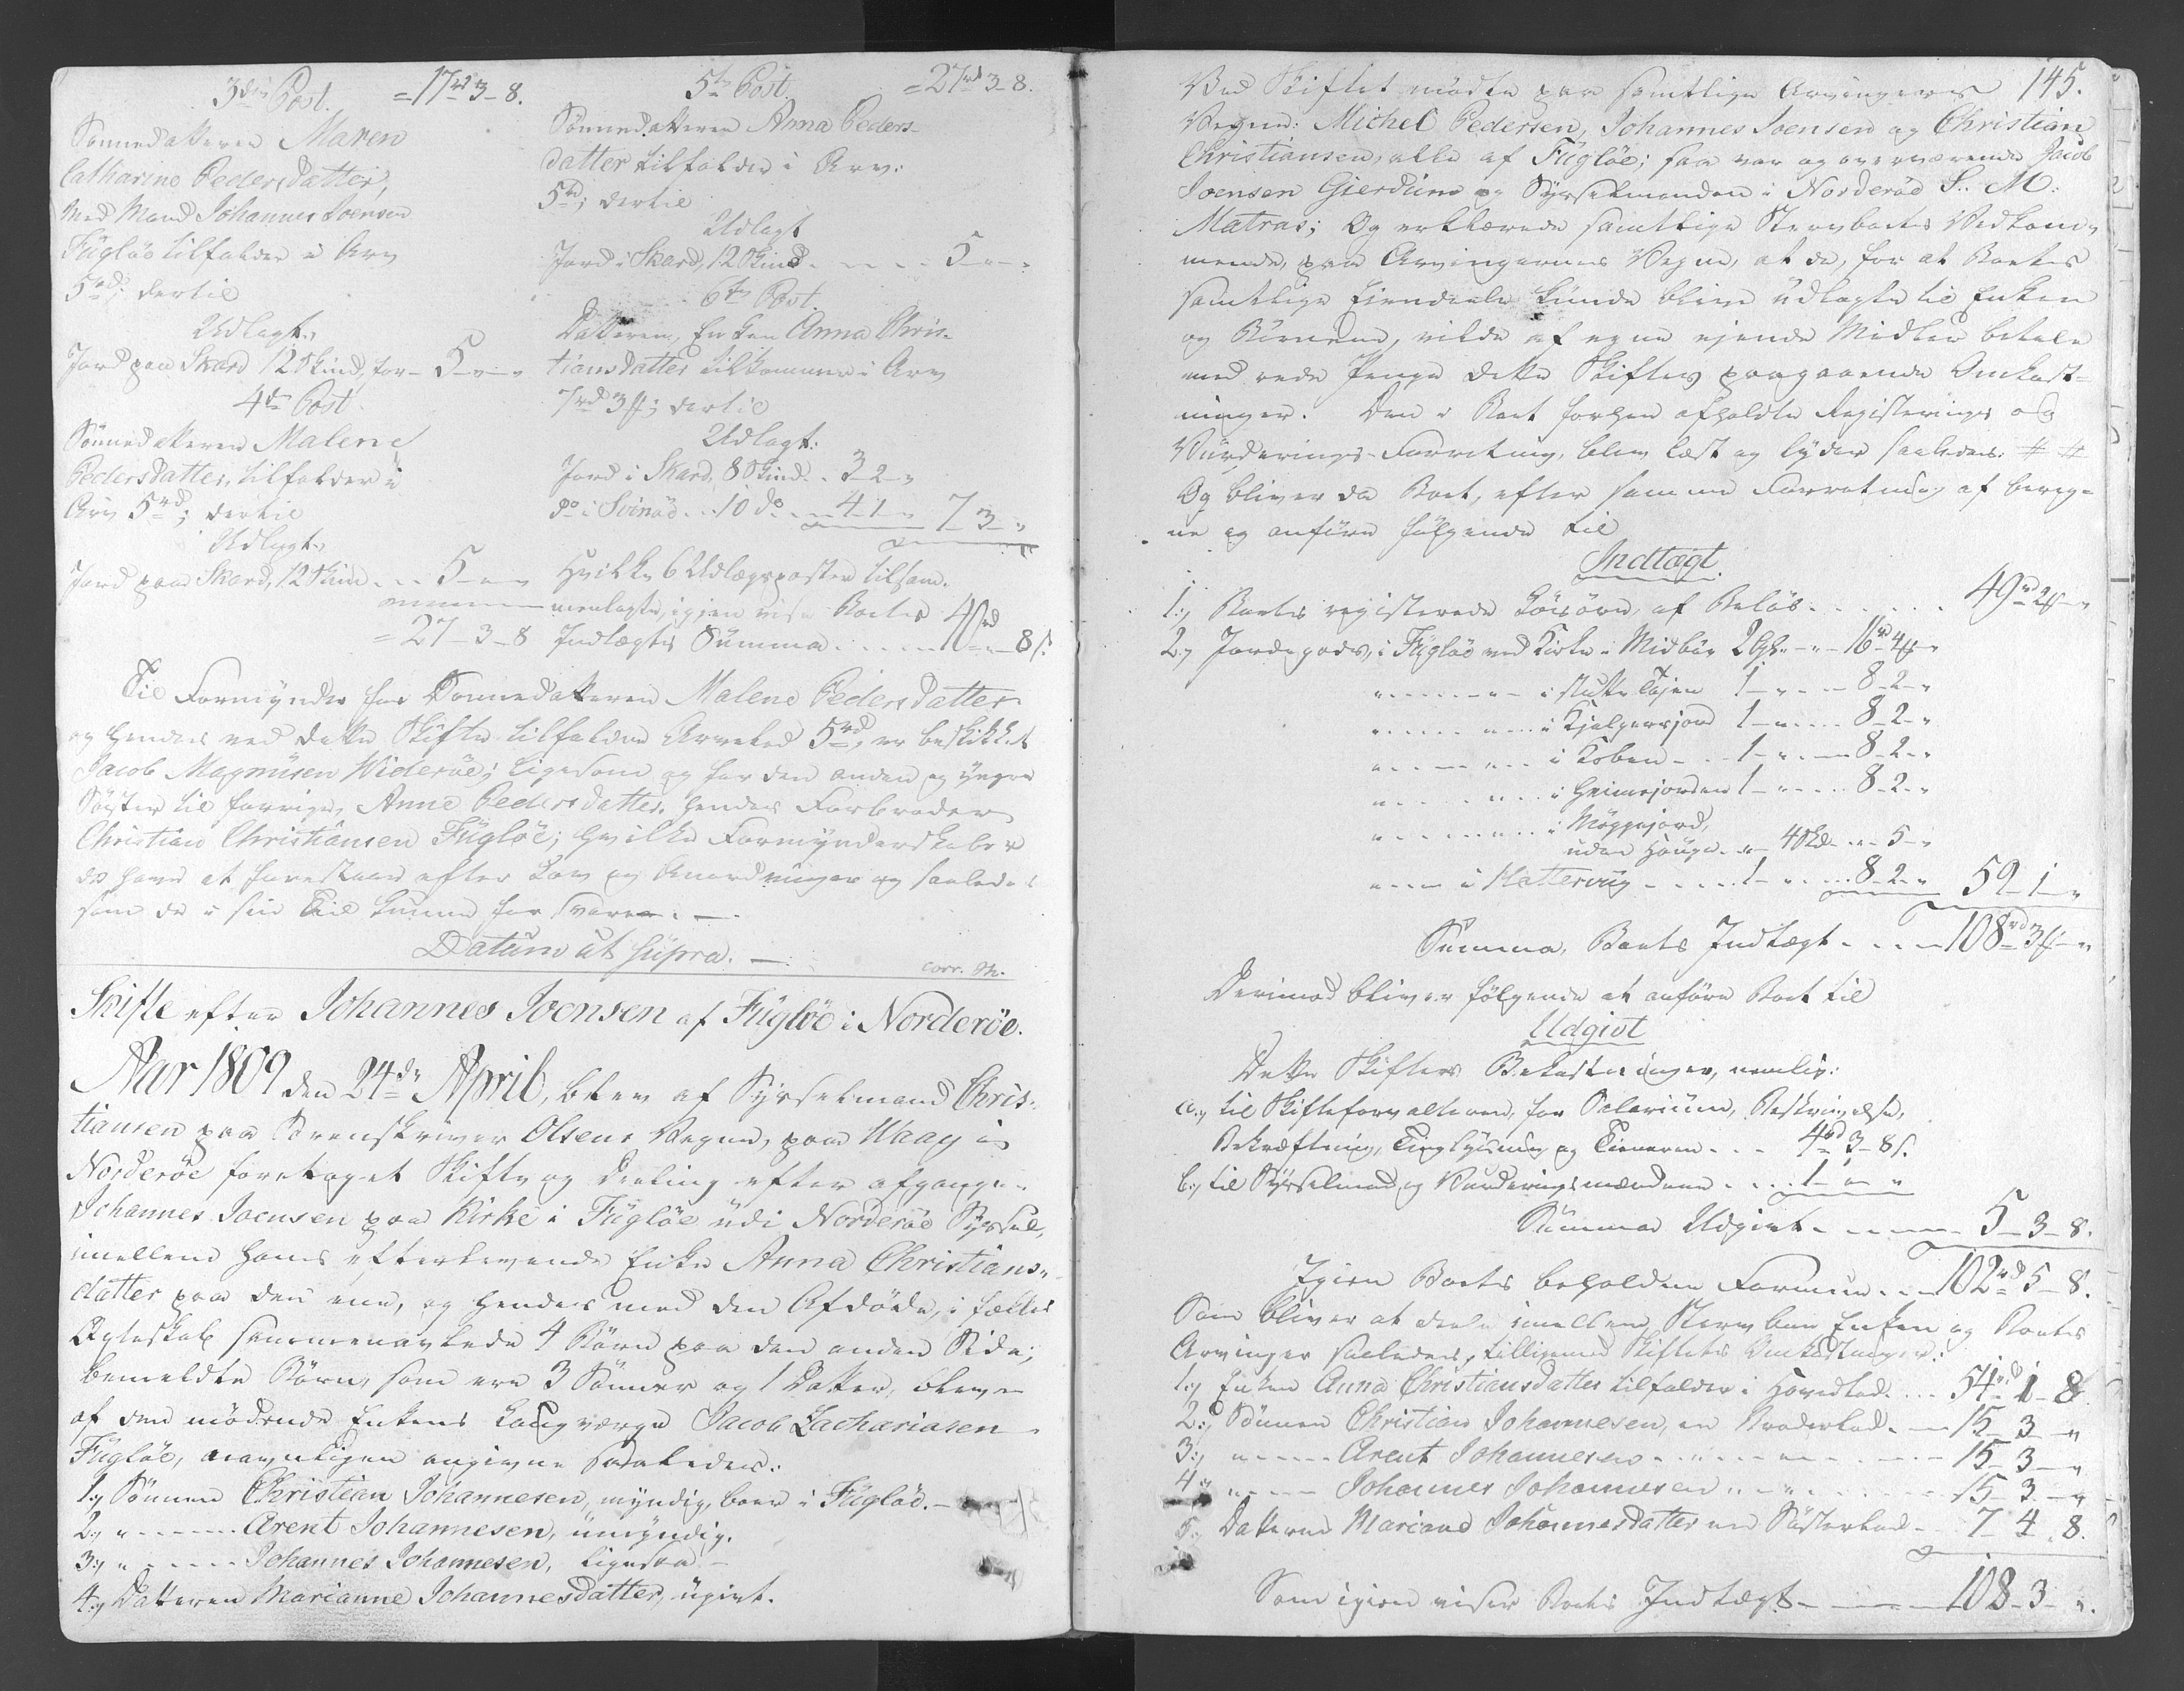 3die Post. = 17rd 3 - 8.
Sønnedatteren Maren
Catharine Pedersdatter,
med Mand Johannes Joensen
Fugløe tilfalder i Arv
5rd; dertil
Udlagt,
Jord paa Skard 12 Skind, for - 5 - " - "
4de Post
Sønnedatteren Malene
Pedersdatter, tilfalder i
Arv 5rd; dertil
Udlagt,
Jord paa Skard, 12 Skind - - 5 - " - "
= 27 - 3 - 8
5te Post. = 27rd 3 - 8.
Sønnedatteren Anna Peders-
datter tilfalder i Arv:
5rd; dertil
Udlagt
Jord i Skard, 12 Skind - - - - 5 - " - "
6te Post.
Datteren, Enken Anna Chris-
tiansdatter tilkommer i Arv
7rd 3ß; dertil
Udlagt:
Jord i Skard, 8 Skind - - 3 - 2 - "
do i Svinöe - - 10 do - - 4 - 1 - " 7 - 3 - "
Hvilke 6 Udlægsposter tilsam-
menlagte, igjen vise Boets
Indtægts Summa - - - - - 40rd " - 8ß.
Til Formynder for Sønnedatteren Malene Pedersdatter
og hendes ved dette Skifte tilfaldne Arvelod 5rd, er beskikket
Jacob Magnusen Widerøe; ligesom og for den anden og yngre
Søster til forrige, Anne Pedersdatter, hendes Farbroder
Christian Christiansen Fugløe; hvilke Formynderskaber
de have at forestaae efter Lov og Anordninger og saaledes
som de i sin Tid kunne forsvare. —
Datum ut supra. —
corr. M.
Skifte efter Johannes Joensen af Fugløe i Norderøe.
Aar 1809 den 24de April, blev af Sysselmand Chris-
tiansen paa Sorenskriver Olsens Vegne, paa Waag i
Norderøe foretaget Skifte og Deeling efter afgangne
Johannes Joensen paa Kirke i Fugløe udi Norderøe Syssel,
imellem hans efterlevende Enke Anna Christians-
datter paa den ene, og hendes med den Afdøde, i fælles
Ægteskab sammenavlede 4 Børn paa den anden Side;
bemeldte Børn, som ere 3 Sønner og 1 Datter, bleve
af den mødende Enkens Laugværge Jacob Zachariasen
Fugløe, navnligen angivne saaledes:
1:, Sønnen Christian Johannesen, myndig, boer i Fugløe. —
2:, " - - - - - Arent Johannesen, umyndig.
3:, " - - - - - Johannes Johannesen, ligesaa —
4:, Datteren Marianne Johannesdatter, ugivt.
145.
Ved Skiftet mødte paa samtlige Arvingers
Vegne: Michel Pedersen, Johannes Joensen og Christian
Christiansen, alle af Fugløe; saa var og overværende Jacob
Joensen Gierdum og Sysselmanden i Norderøe S. M.
Matras; Og erklærede samtlige Stervboets Vedkom-
mende, paa Arvingernes Vegne, at de, for at Boets
samtlige Eiendeele kunde blive udlagte til Enken
og Børnene, vilde af egne eiende Midler betale
med rede Penge dette Skiftes paagaaende Omkost-
ninger. Den i Boet forhen afholdte Registerings og
Vurderings-Forretning, blev læst og lyder saaledes: # #
Og bliver da Boet, efter samme Forretning at bereg-
ne og anføre følgende til
Indtægt.
1:, Boets registerede Løsøre, af Beløb - - - - - - 49rd 2ß - "
2:, Jordegods, i Fugløe ved Kirke i Midbøe 2 Gl. - " - 16rd 4ß "
" - - - - - - i slutte Tøjen 1 - " - - 8 - 2 - "
" - - - - - " - i Kjalgersjord 1 - " - - - 8 - 2 - "
" - - - - - " - i Koben - - - 1 - " - - 8 - 2 - "
" - - - - - " - i Heimejorden 1 - " - - - 8 - 2 - "
" - - - - - " - i Møggejord,
uden Hauge - " - 4 Skd. - - - 5 - "
" - - - i Hattervig - - - - 1 - " - - - 8 - 2 - " 59 - 1 - "
Summa, Boets Indtægt - - - - 108rd 3ß - "
Derimod bliver følgende at anføre Boet til
Udgivt
Dette Skiftes Bekostninger, nemlig:
a:, til Skifteforvalteren, for Salarium, Beskrivelse,
Bekræftning, Tinglysning og Tieneren - - - 4rd 3 - 8ß.
b:, til Sysselmand og Vurderingsmændene - - - 1 - " - "
Summa Udgivt - - - - - 5 - 3 - 8.
Igien Boets beholdne Formue - - - 102rd 5 - 8.
Som bliver at deele imellem Stervboe Enken og Boets
Arvinger saaledes, tilligemed Skiftets Omkostninger:
1:, Enken Anna Christiansdatter tilfalder i Hovedlod - - - 54rd 1 - 8
2:, Sønnen Christian Johannesen, en Broderlod - - 15 - 3 - "
3:, " - - - - Arent Johannesen - - " - - - " - - - - - 15 - 3 - "
4:, " - - - - Johannes Johannesen - " - - " - - - - - 15 - 3 - "
5:, Datteren Mariane Johannesdatter en Søsterlod - 7 - 4 - 8.
Som igien viser Boets Indtægt - - - - - 108 - 3 - ".